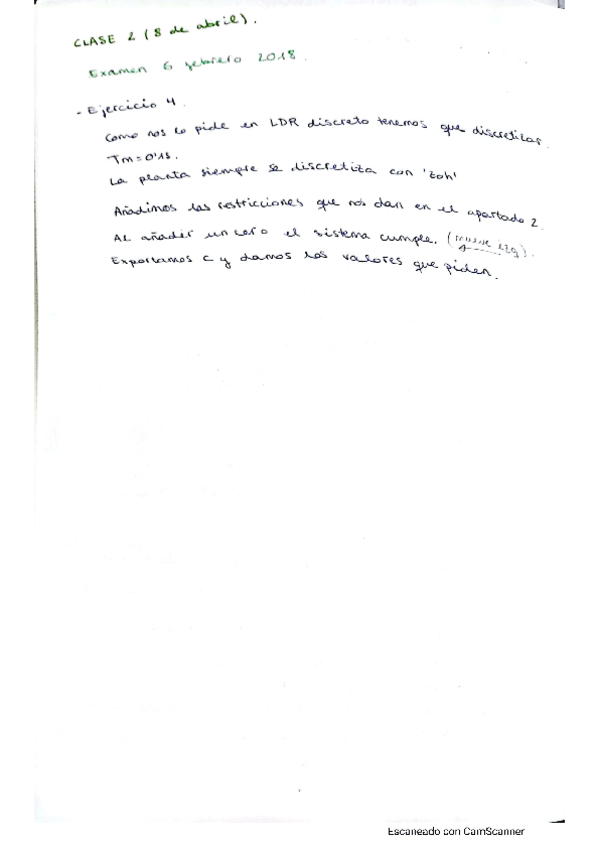 CLASE 2 (8 de abril).
Examen 6 febrero 2018.
- Ejercicio 4.
Como nos lo pide en LDR discreto tenemos que discretizar.
Tm = 0'1s.
La planta siempre se discretiza con 'zoh'
Añadimos las restricciones que nos dan en el apartado 2.
Al añadir un cero el sistema cumple. (
Exportamos C y damos los valores que piden.
Escaneado con CamScanner